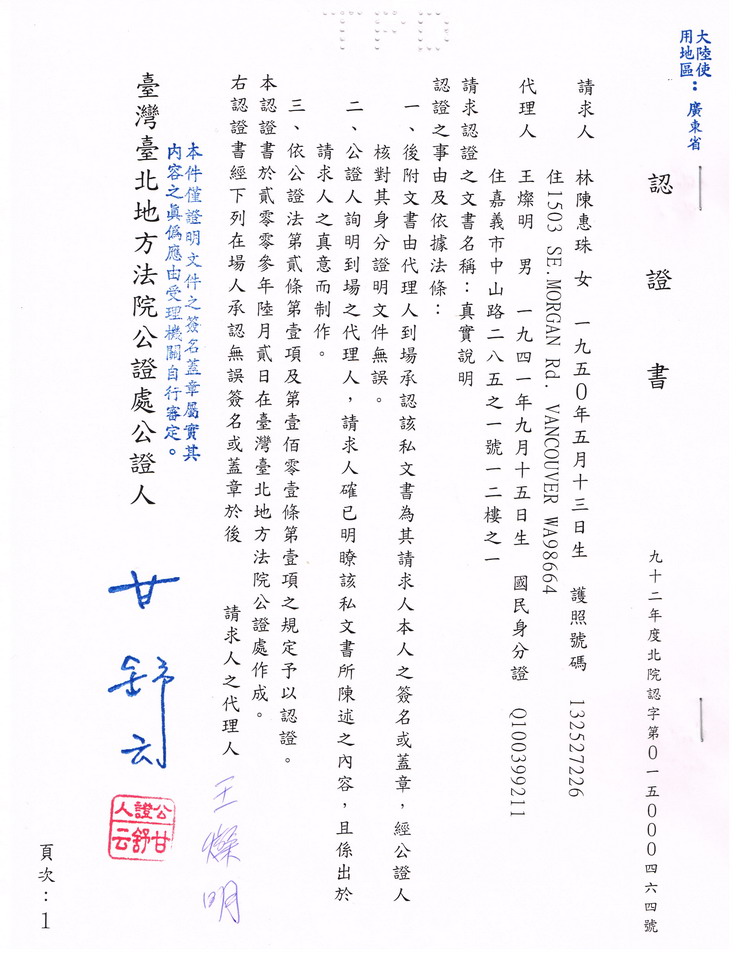 大陸使
用地區：廣東省
認證書
九十二年度北院認字第0一五000四六四號
請求人　林陳惠珠　女　一九五0年五月十三日生　護照號碼　132527226
住1503 SE.MORGAN Rd. VANCOUVER WA98664
代理人　王燦明　男　一九四一年九月十五日生　國民身分證　Q100399211
住嘉義市中山路二八五之一號一二樓之一
請求認證之文書名稱：真實說明
認證之事由及依據法條：
一、後附文書由代理人到場承認該私文書為其請求人本人之簽名或蓋章，經公證人
核對其身分證明文件無誤。
二、公證人詢明到場之代理人，請求人確已明瞭該私文書所陳述之內容，且係出於
請求人之真意而制作。
三、依公證法第貳條第壹項及第壹佰零壹條第壹項之規定予以認證。
本認證書於貳零零參年陸月貳日在臺灣臺北地方法院公證處作成。
右認證書經下列在場人承認無誤簽名或蓋章於後
請求人之代理人　王燦明
本件僅證明文件之簽名蓋章屬實其
內容之真偽應由受理機關自行審定。
臺灣臺北地方法院公證處公證人　甘舒云
公證人
甘舒云
頁次：1